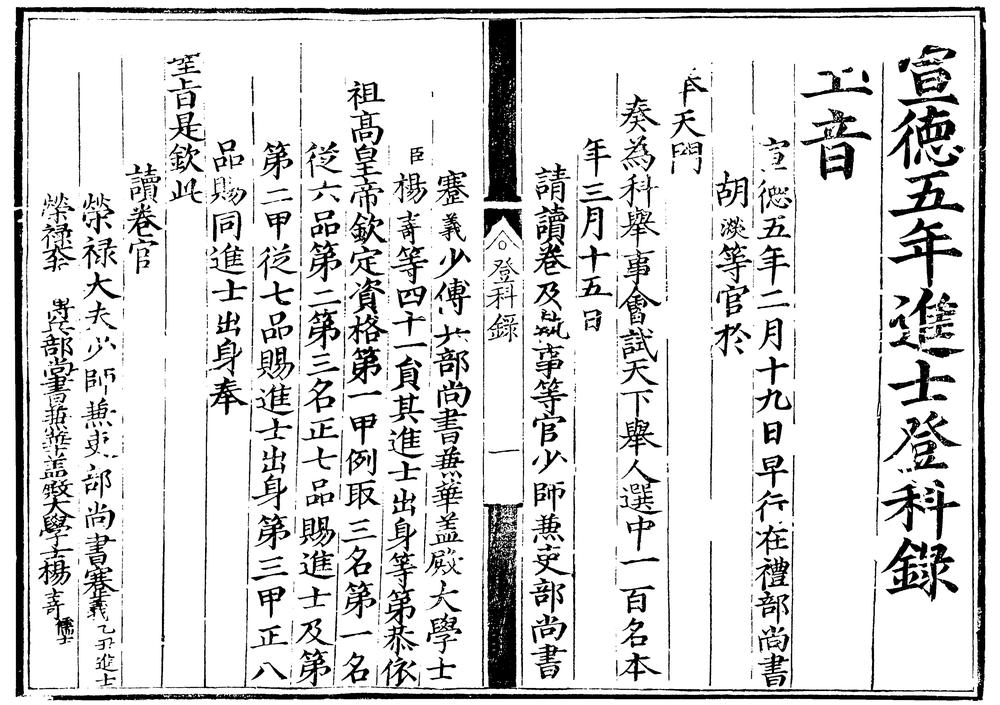 宣德五年進士登科錄
玉音
宣德五年二月十九日早行在禮部尚書
胡濙等官於
奉天門
奏為科舉事會試天下舉人選中一百名本
年三月十五日
請讀卷及執事等官少師蒹吏部尚書
登科錄 一
蹇義少傅兵部尚書蒹華盖殿大學士
臣楊士奇等四十一負其進士出身等第恭依
祖高皇帝欽定資格第一甲例取三名第一名
從六品第二第三名正七品賜進士及第
第二甲從七品賜進士出身第三甲正八
品賜同進士出身奉
聖旨是欽此
讀卷官
榮禄大夫少師蒹吏部尚書蹇義乙丑進士
榮禄大夫 兵部尚書蒹華盖殿大學士楊士奇儒士